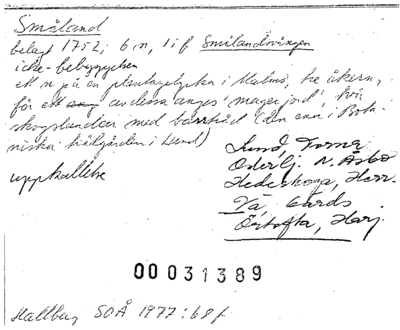 Småland
belagt 1752; 6 n, 1 i f Smålandsvången
icke-bebyggelse
ett n på en plantagelycka i Malmö, tre åkern,
för ett av dessa anges 'mager jord', två
skogslanden med barrträd (den ena i Bota-
niska trädgården i Lund)
uppkallelse
Lund, Torna
Österlj. N. Åsbo
Hedeskoga, Herr.
Vä Gärds
Örtofta, Harj.
00031389
Hallberg SOÅ 1977:68 f